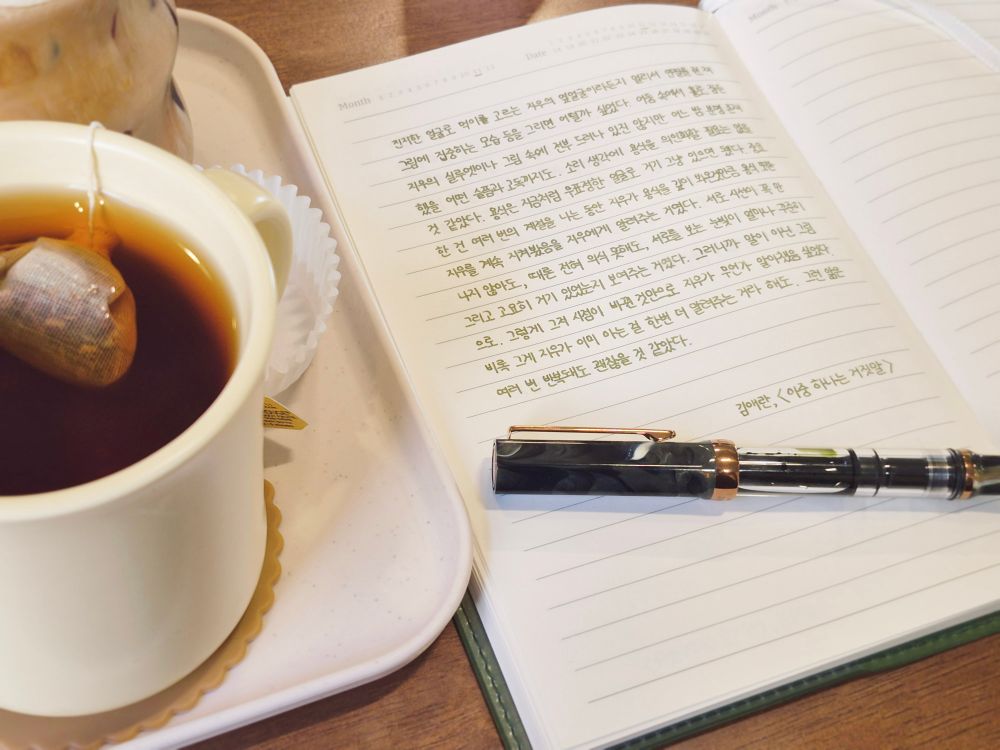 Month 1 2 3 4 5 6 7 8 9 10 11 12 Date
진지한 얼굴로 먹이를 고르는 지우의 옆얼굴이라든지 멀리서 연필을 쥔 채
그림에 집중하는 모습 등을 그리면 어떨까 싶었다. 어둠 속에서 홀로 잠든
지우의 실루엣이나 그림 속에 전부 드러나 있진 않지만 어느 밤 분명 존재
했을 어떤 슬픔과 고독까지도. 소리 생각에 용식을 의인화할 필요는 없을
것 같았다. 용식은 지금처럼 무표정한 얼굴로 거기 그냥 있으면 됐다. 중요
한 건 여러 번의 계절을 나는 동안 지우가 용식을 깊이 봐온만큼 용식 또한
지우를 계속 지켜봤음을 지우에게 알려주는 거였다. 서로 시선이 꼭 만
나지 않아도, 때론 전혀 의식 못해도, 서로를 보는 눈빛이 얼마나 꾸준히
그리고 고요히 거기 있었는지 보여주는 거였다. 그러니까 말이 아닌 그림
으로. 그렇게 그저 시점이 바뀐 것만으로 지우가 무언가 알아챘음 싶었다.
비록 그게 지우가 이미 아는 걸 한번 더 알려주는 거라 해도. 그런 앎은
여러 번 반복돼도 괜찮을 것 같았다.
김애란, <이중 하나는 거짓말>
Month